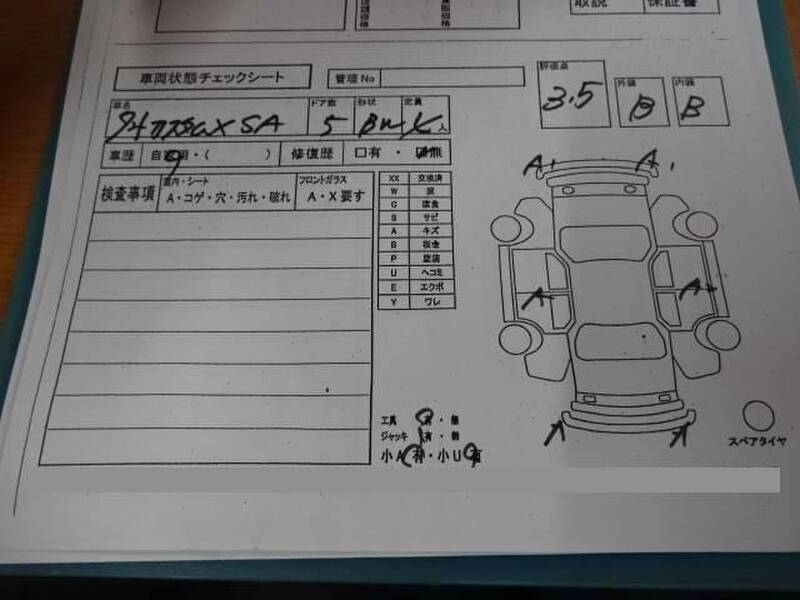 取説 保証書
車両状態チェックシート
管理No
評価点
3.5
外装
B
内装
B
車名
SA
ドア数
5
形状
定員
人
車歴
自家用・( )
修復歴
□有・□無
検査事項
室内・シート
A・コゲ・穴・汚れ・破れ
フロントガラス
A・X要す
XX 交換済
W 波
C 腐食
S サビ
A キズ
B 板金
P 塗装
U ヘコミ
E エクボ
Y ワレ
A1 A1
A A
工具 有・無
ジャッキ 有・無
小A有・小U有
スペアタイヤ